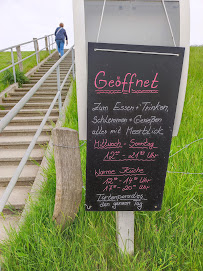 Geöffnet
zum Essen + Trinken,
Schlemmen + Genießen
alles mit Meerblick
Mittwoch - Sonntag
12 - 19 Uhr
warme Küche
12 - 14 Uhr
17 - 20 Uhr
Tortenparadies
den ganzen Tag